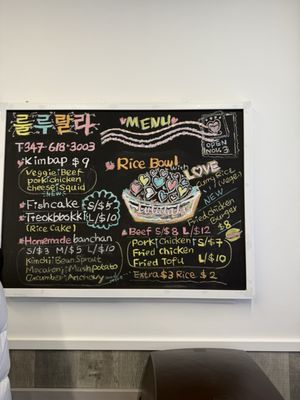 룰루랄라
T347-618-3003
Kimbap $9
Veggie, Beef
pork, chicken
cheese, squid
NEW
Fishcake S/$5
Tteokbokki L/$10
(Rice Cake)
Homemade banchan
S/$3 M/$5 L/$10
Kimchi, Bean Sprout
Macaroni, Mush potato
Cucumber, Anchovy
MENU
OPEN
Rice Bowl with
LOVE
Curry Rice
(Veggie)
NEW
Fried chicken
Burger
$8
Beef S/$8 L/$12
Pork, Chicken S/$7
Fried Chicken
Fried Tofu L/$10
Extra $3 Rice $2